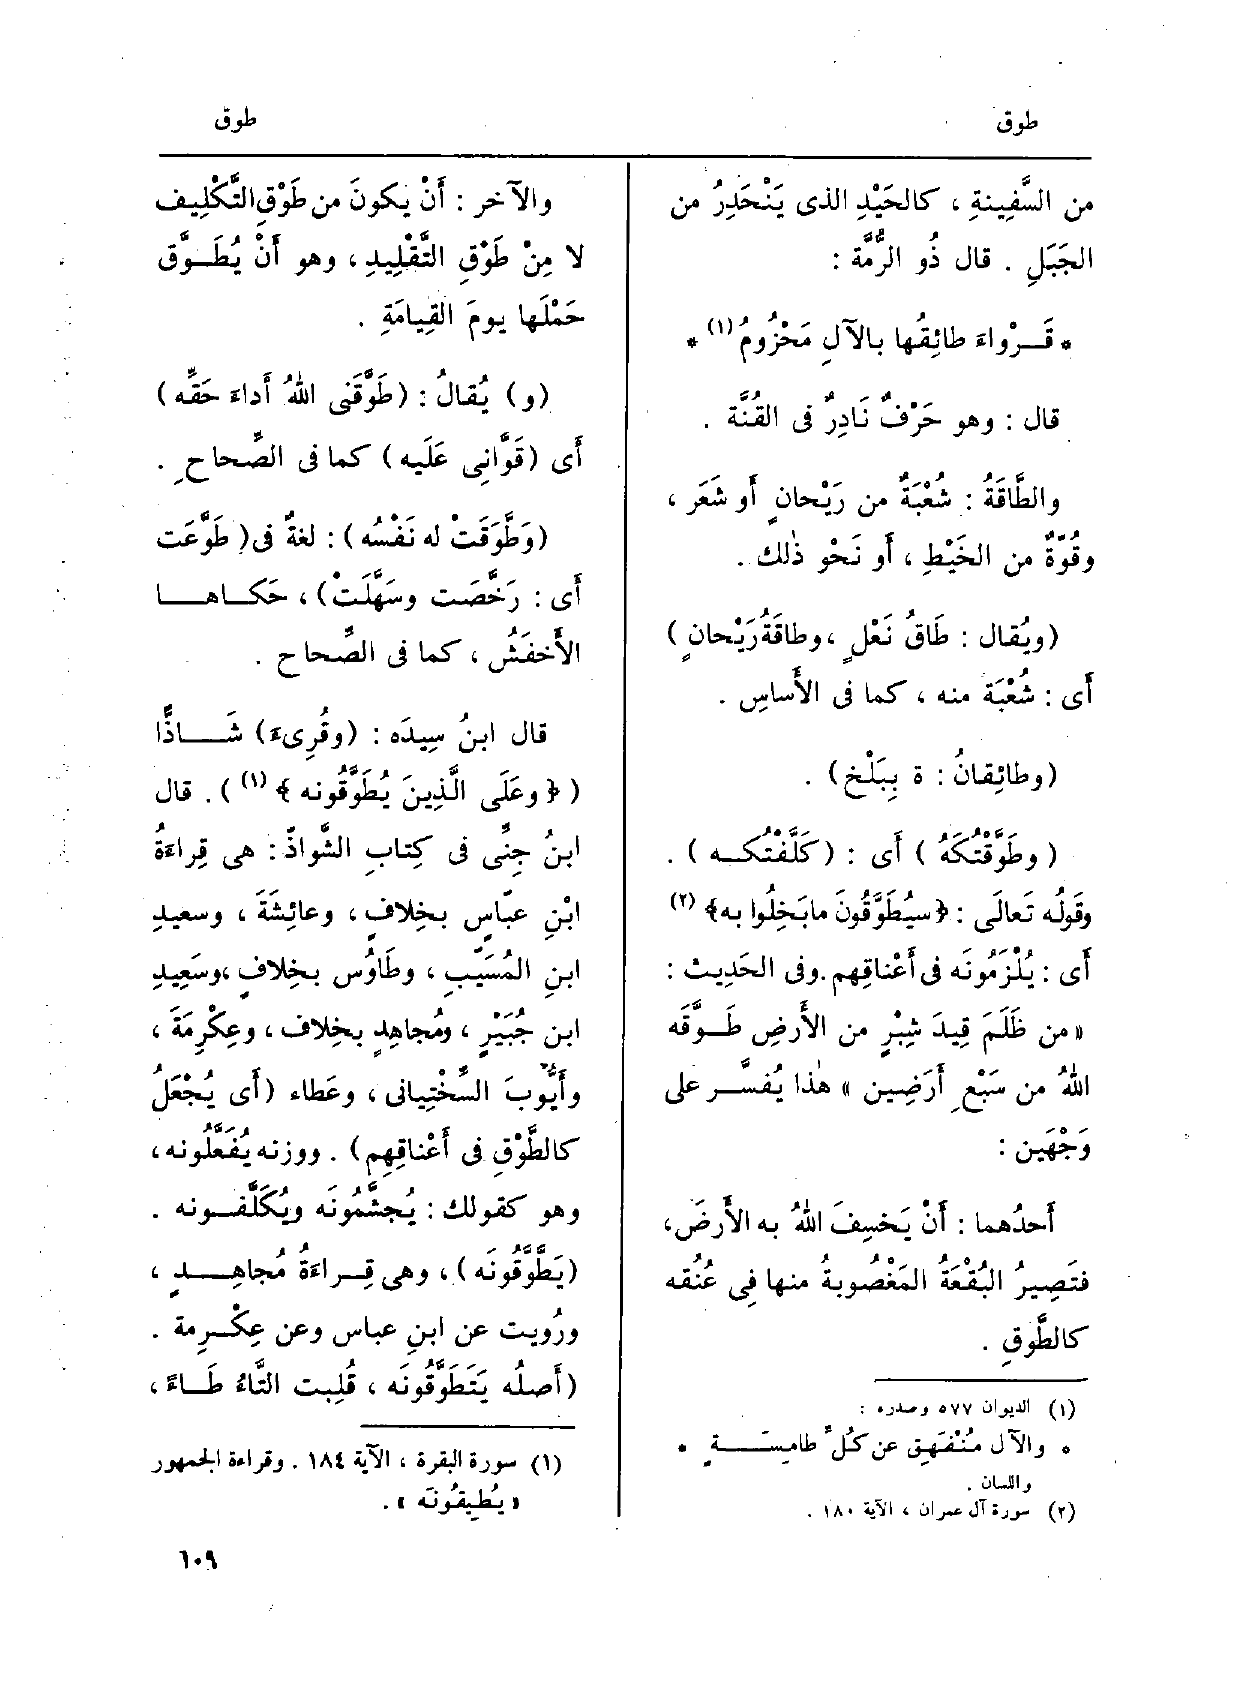 طوق
طوق
من السَّفِينةِ ، كالحَيْدِ الذى يَنْحَدِرُ من
الجَبَلِ . قال ذُو الرُّمَّة :
* قَــرْواءَ طائِقُها بالآلِ مَحْزُومُ (١) *
قال : وهو حَرْفٌ نَادِرٌ فى القُنَّة .
والطَّاقَةُ : شُعْبَةٌ من رَيْحانٍ أَو شَعَر ،
وقُوَّةٌ من الخَيْطِ ، أَو نَحْو ذٰلك .
(ويُقال : طَاقُ نَعْلٍ ، وطاقَةُ رَيْحانٍ )
أَى : شُعْبَة منه ، كما فى الأَساسِ .
(وطائِقانُ : ة بِبَلْخ) .
( وطَوَّقْتُكَهُ ) أَى : (كَلَّفْتُكــه ) .
وقَولُه تَعالَى : ﴿سيُطَوَّقُونَ مابَخِلُوا به﴾ (٢)
أَى : يُلْزَمُونَه فى أَعْناقِهم . وفى الحَدِيث :
« من ظَلَمَ قِيدَ شِبْرٍ من الأَرضِ طَــوَّقَه
اللهُ من سَبْعِ أَرَضِين » هٰذا يُفسَّــر على
وَجْهَين :
أَحدُهما : أَنْ يَخسِفَ اللهُ به الأَرضَ،
فتَصِيرُ البُقْعَةُ المَغْصُوبةُ منها فِى عُنُقه
كالطَّوقِ .
(١) الديوان ٥٧٧ وصدره :
* والآل مُنْفَهِق عن كُلِّ طامِسَــــة *
واللسان .
(٢) سورة آل عمران ، الآية ١٨٠ .
والآخر : أَنْ يكونَ من طَوْقِ التَّكْلِيف
لا مِنْ طَوْقِ التَّقْلِيدِ ، وهو أَنْ يُطَــوَّق
حَمْلَها يومَ القِيامَةِ .
(و) يُقالُ : (طَوَّقَنى اللهُ أَداءَ حَقِّه)
أَى (قَوَّانِى عَلَيه) كما فى الصِّحاحِ .
(وَطَّوَقَتْ له نَفْسُه) : لغةٌ فى ( طَوَّعَت
أَى : رَخَّصَت وسَهَّلَتْ) ، حَكــاهــا
الأَخفَشُ ، كما فى الصِّحاح .
قال ابنُ سِيدَه : (وقُرِىءَ) شَــــاذًّا
( ﴿وعَلَى الَّذِينَ يُطَوَّقُونه ﴾ (١) ) . قال
ابنُ جِنِّى فى كِتابِ الشَّواذّ : هى قِراءَةُ
ابْنِ عبّاسٍ بخِلافٍ، وعائِشَةَ ، وسعيدِ
ابنِ المُسَيَّبِ ، وطَاوُس بخِلافٍ ،وسَعِيدِ
ابن جُبَيْرٍ ، ومُجاهِدٍ بخِلاف ، وعِكْرِمَةَ ،
وأَيُّوبَ السَّخْتِيانى ، وعَطاء (أَى يُجْعَلُ
كالطَّوْقِ فى أَعْناقِهِم) . ووزنه يُفَعَّلونه ،
وهو كقولك : يُجشَّمُونَه ويُكَلَّفــونه .
(يَطَّوَّقُونَه) ، وهى قِــراءَةُ مُجاهِـــدٍ ،
ورُويت عن ابنِ عباس وعن عِكْــرِمة .
(أَصلُه يَتَطَوَّقُونَه ، قُلِبت التَّاءُ طَــاءً ،
(١) سورة البقرة ، الآية ١٨٤ . وقراءة الجمهور
« يُطِيقُونَه » .
٦٠٩